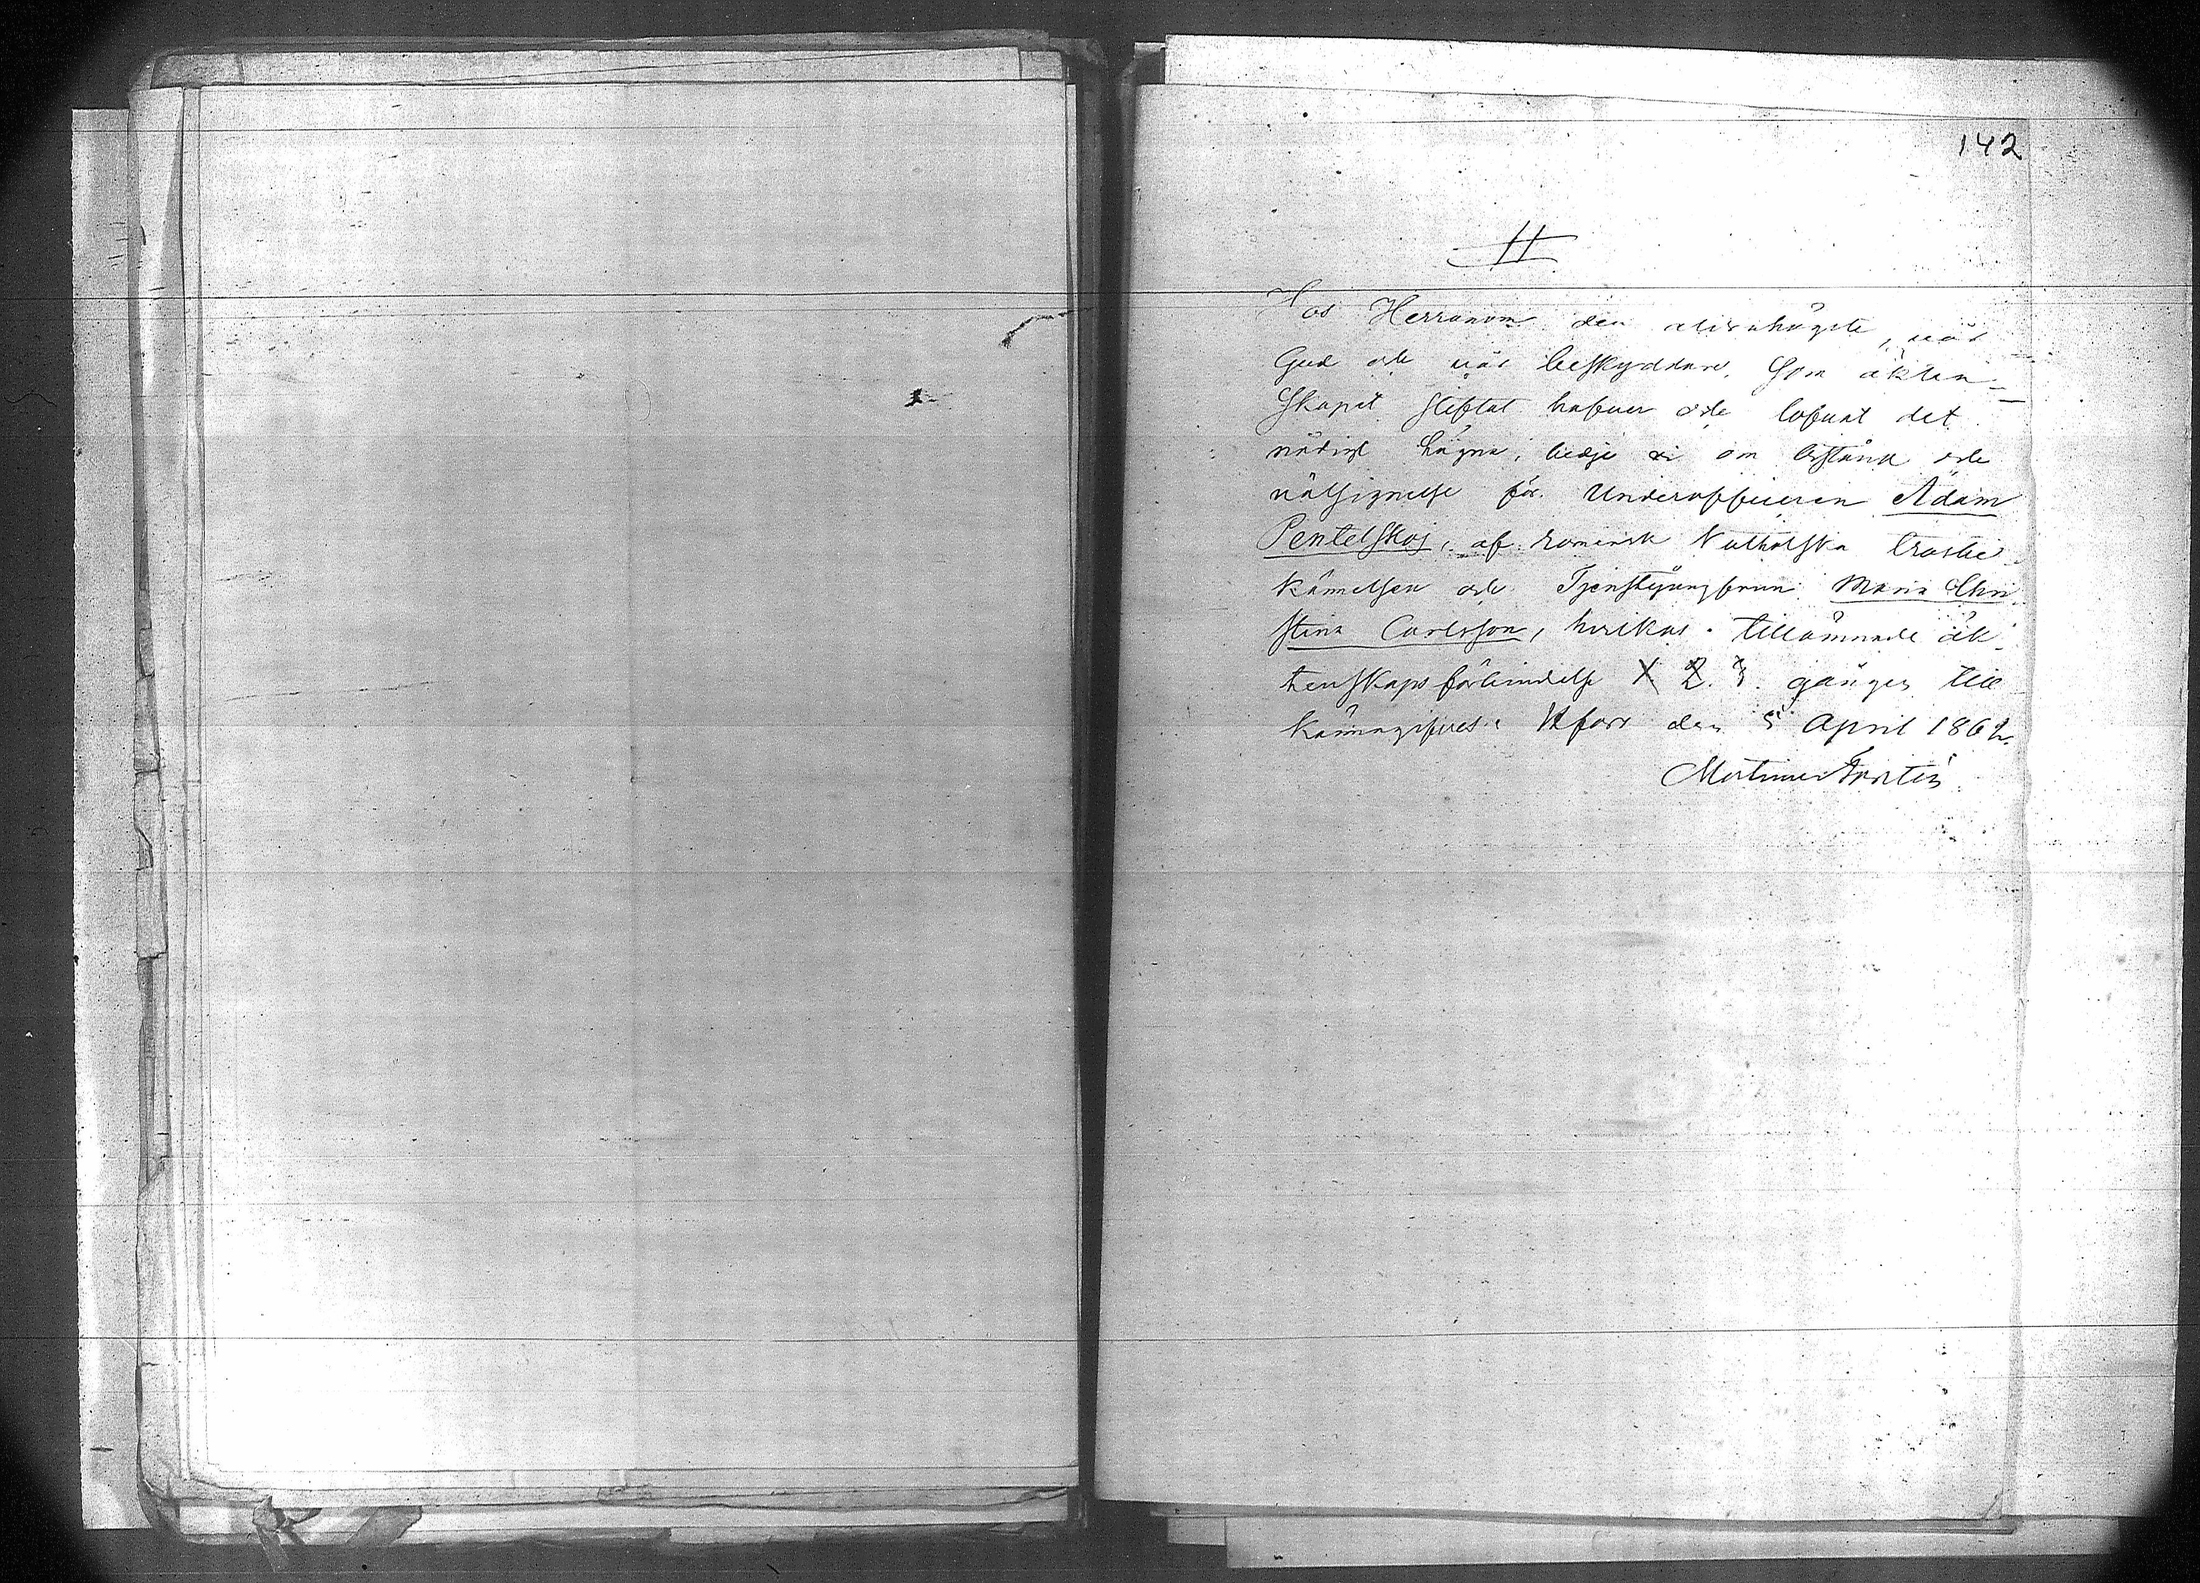 142
H
Hos Herranom den allrahögste, vår
Gud och vår beskyddare, Som äkten-
skapet stiftat hafver och lofvat det
nådigt hägna, bedje vi om bistånd och
välsignelse för Underofficeren Adam
Pentelskoj, af romersk Katholska trosbe-
kännelsen och Tjenstejungfrun Maria Chri-
stina Carlsson, hvilkas tillämnade äk-
tenskapsförbindelse 1. 2. 3. gången till-
kännagifves. Hfors den 5 April 1862.